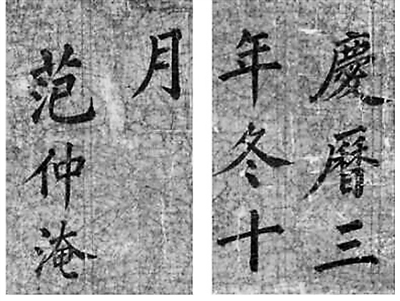 慶曆三
年冬十
月
范仲淹